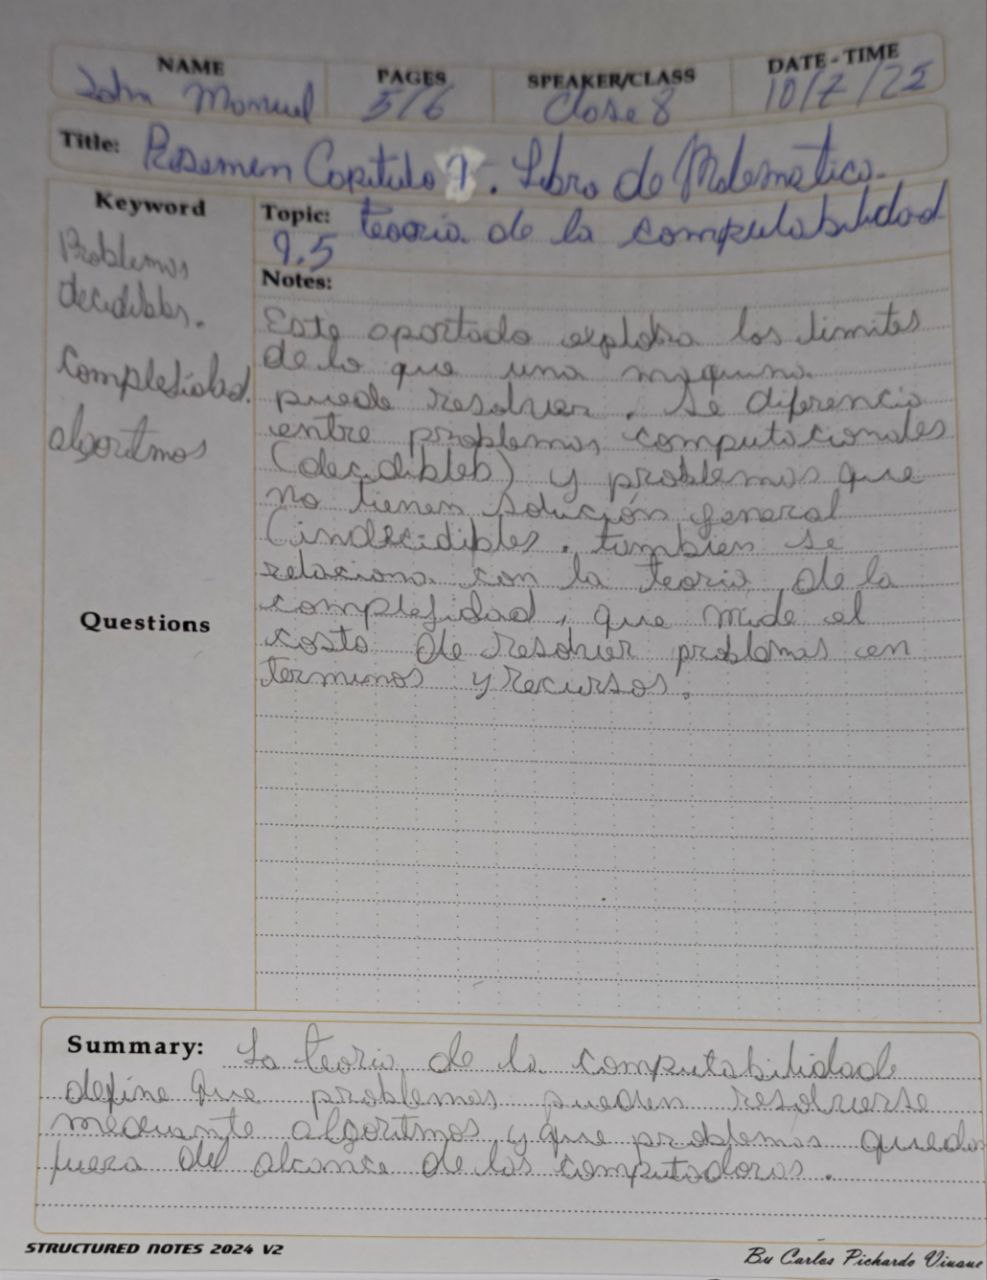 NAME
John Manuel
PAGES
5/6
SPEAKER/CLASS
Clase 8
DATE - TIME
10/7/25
Title: Resumen Capitulo 9. Libro de Matematica.
Keyword
Problemas
decidibles.
Complejidad.
algoritmos
Questions
Topic: teoria de la computabilidad
9.5
Notes:
Este apartado explora los limites
de lo que una maquina
puede resolver. Se diferencia
entre problemas computacionales
(decidibles) y problemas que
no tienen solución general
(indecidibles. tambien se
relaciona con la teoria de la
complejidad, que mide el
costo de resolver problemas en
terminos y recursos.
Summary: La teoria de la computabilidade
define que problemas pueden resolverse
mediante algoritmos y que problemas quedan
fuera del alcance de las computadoras.
STRUCTURED NOTES 2024 V2
By Carlos Pichardo Viuque